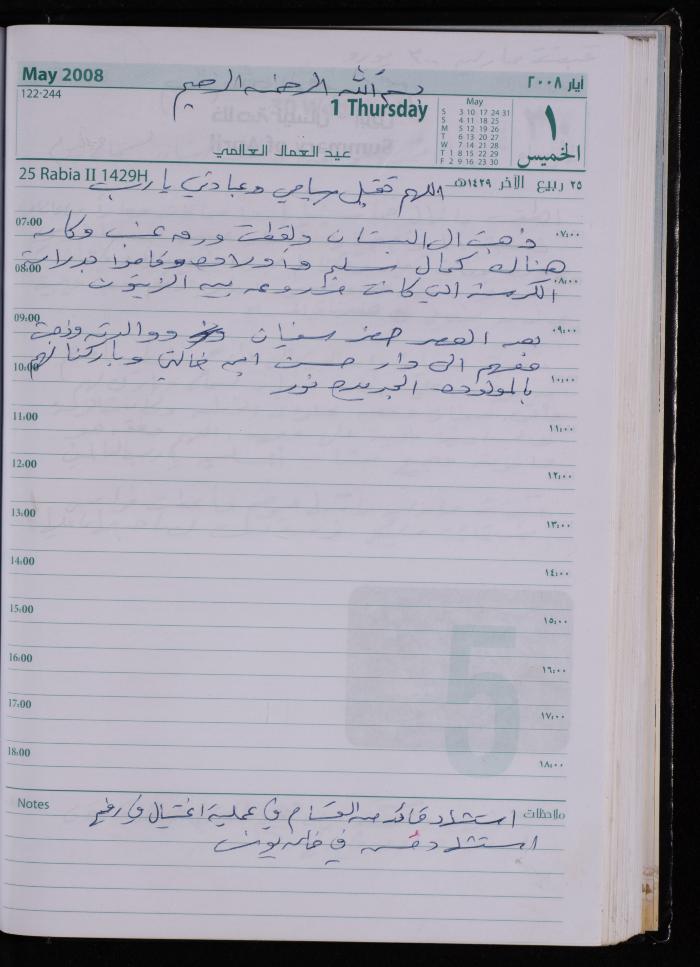 May 2008
أيار ٢٠٠٨
122-244
بسم الله الرحمن الرحيم
1 Thursday
May
S 3 10 17 24 31
S 4 11 18 25
M 5 12 19 26
T 6 13 20 27
W 7 14 21 28
T 1 8 15 22 29
F 2 9 16 23 30
١
الخميس
عيد العمال العالمي
25 Rabia II 1429H
٢٥ ربيع الآخر ١٤٢٩هـ
اللهم تقبل صيامي وعبادتي يا رب
07:00 ٠٧:٠٠
ذهبت الى البستان ولقطت ورق عنب وكان
هناك كمال سليم وأولاده وقاموا بدراسة
08:00 ٠٨:٠٠
الكرسنة التي كانت مزروعة بين الزيتون
09:00 ٠٩:٠٠
بعد العصر حضر سفيان ووالدته وذهبت
معهم الى دار حسن ابن خالتي وباركنا لهم
10:00 ١٠:٠٠
بالمولودة الجديدة نور
11:00 ١١:٠٠
12:00 ١٢:٠٠
13:00 ١٣:٠٠
14:00 ١٤:٠٠
15:00 ١٥:٠٠
16:00 ١٦:٠٠
17:00 ١٧:٠٠
18:00 ١٨:٠٠
5
Notes
ملاحظات
استشهاد قائد من القسام في عملية اغتيال في رفح
استشهاد في خان يونس